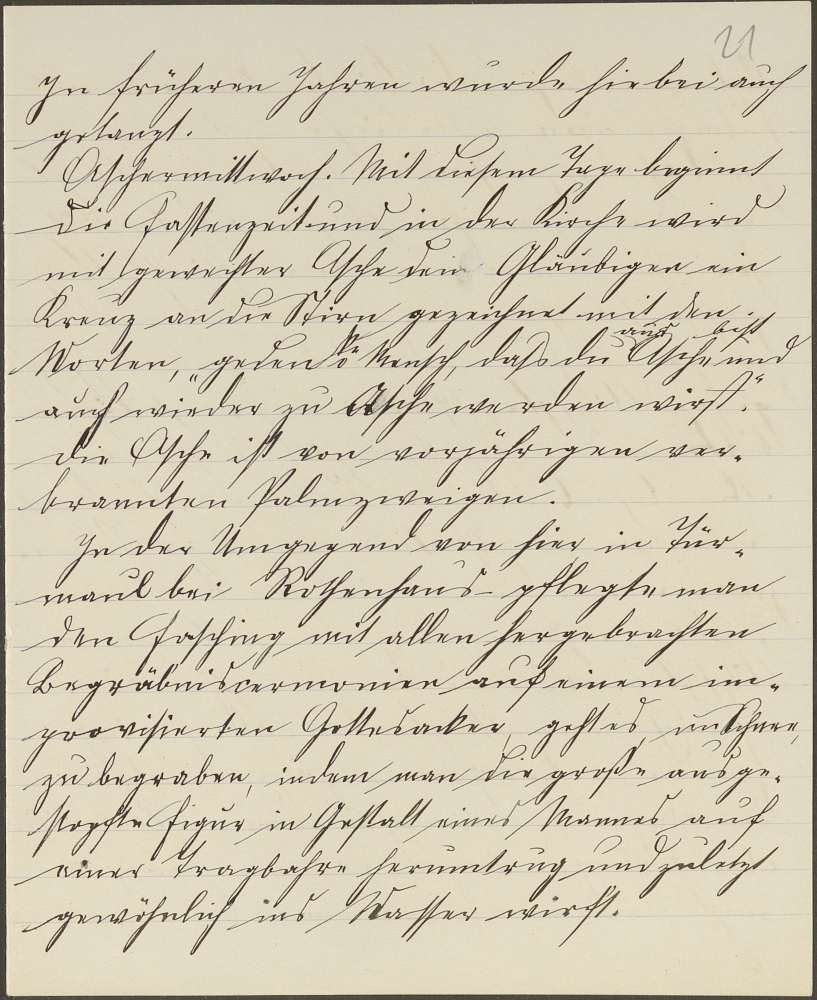 21
In früheren Jahren wurde hiebei auch
getanzt.
Aschermittwoch. Mit diesem Tage beginnt
die Fastenzeit und in der Kirche wird
mit geweihter Asche den Gläubigen ein
Kreuz an die Stirn gezeichnet mit den
Worten, "gedenk o Mensch, dass du aus Asche bist und
auch wieder zu Asche werden wirst."
Die Asche ist von vorjährigen ver-
brannten Palmzweigen.
In der Umgegend von hier in Tür-
maul bei Rothenhaus pflegte man
den Fasching mit allen hergebrachten
Begräbniscermonien auf einem im-
provisierten Gottesacker, geht es, im Schnee,
zu begraben, indem man die große ausge-
stopfte Figur in Gestalt eines Mannes auf
einer Tragbahre herumtrug und zuletzt
gewöhnlich ins Wasser wirft.